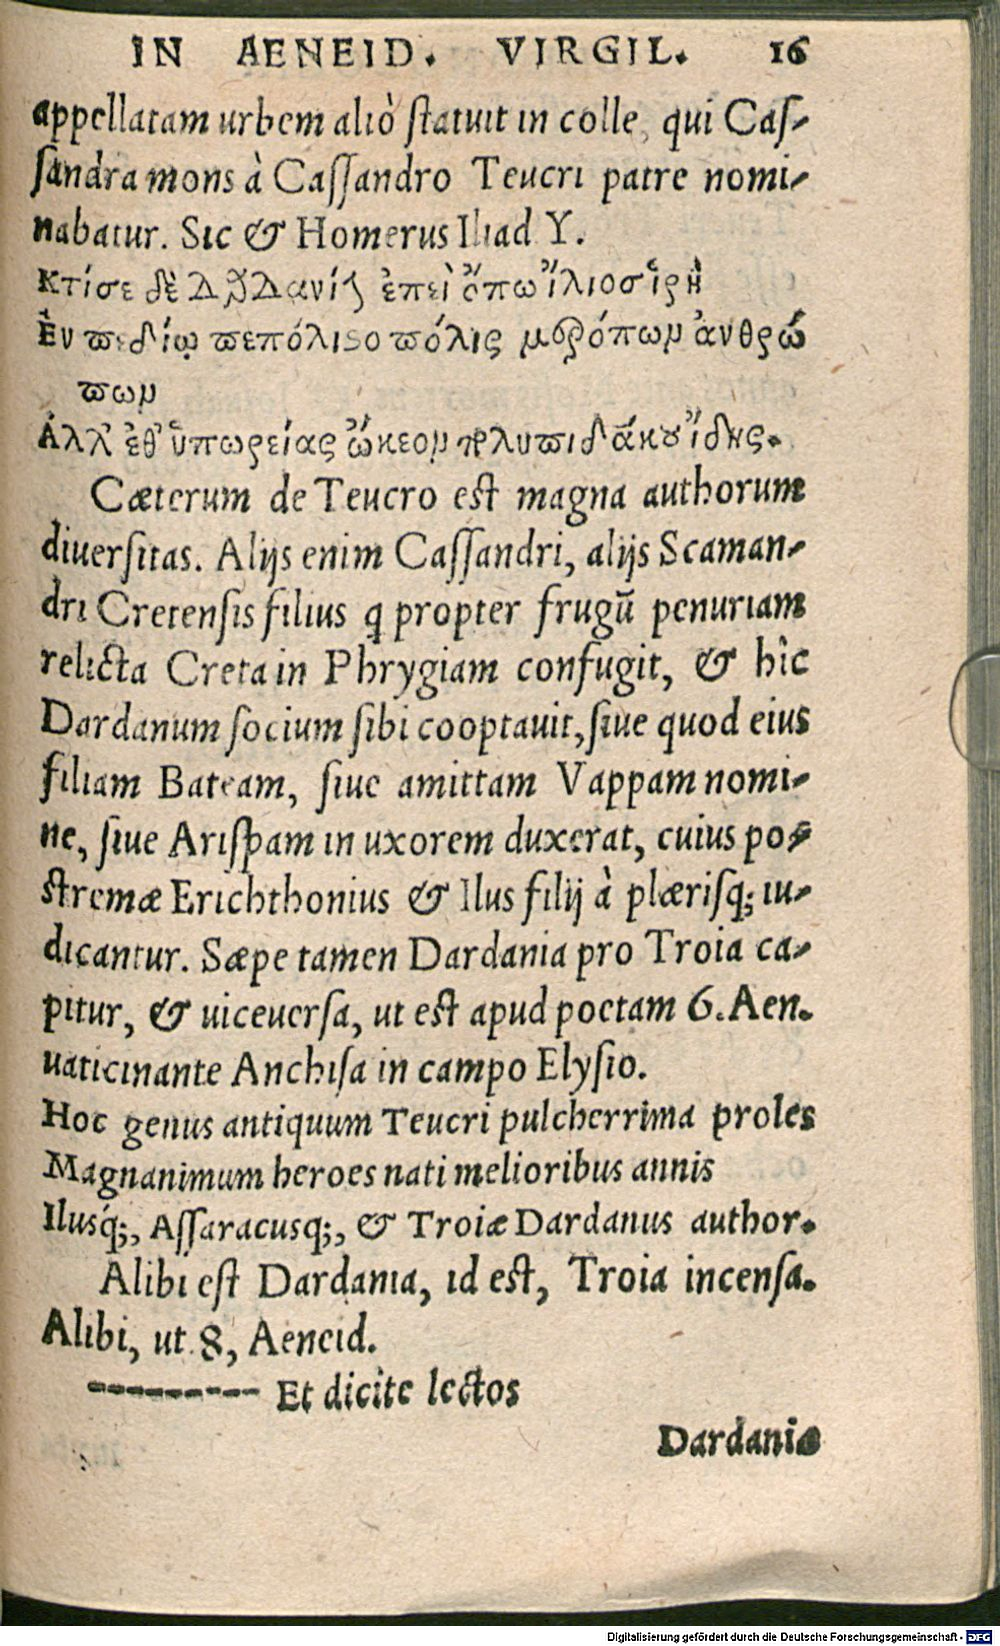 IN AENEID. VIRGIL. 16
appellatam urbem aliò ſtatuit in colle, qui Caſ-
ſandra mons à Caſſandro Teucri patre nomi-
nabatur. Sic & Homerus Iliad Y.
Κτίσε δὲ Δαρδανίην ἐπεὶ οὔπω ἴλιοσ ἱρὴ
Ἐν πεδίῳ πεπόλιστο πόλις μερόπων ἀνθρώ
πων
Ἀλλ' ἐθ' ὑπωρείας ᾤκεον πολυπιδάκου ἴδης.
Cæterum de Teucro eſt magna authorum
diuerſitas. Alijs enim Caſſandri, alijs Scaman-
dri Cretenſis filius q propter frugū penuriam
relicta Creta in Phrygiam confugit, & hîc
Dardanum ſocium ſibi cooptauit, ſiue quod eius
filiam Bateam, ſiue amittam Vappam nomi-
ne, ſiue Ariſpam in uxorem duxerat, cuius po-
ſtremæ Erichthonius & Ilus filij à plæriſq; iu-
dicantur. Sæpe tamen Dardania pro Troia ca-
pitur, & uiceuerſa, ut eſt apud poetam 6. Aen.
uaticinante Anchiſa in campo Elyſio.
Hoc genus antiquum Teucri pulcherrima proles
Magnanimum heroes nati melioribus annis
Ilusq́;, Aſſaracusq;, & Troiæ Dardanus author.
Alibi eſt Dardania, id eſt, Troia incenſa.
Alibi, ut 8, Aeneid.
--------- Et dicite lectos
Dardaniæ
Digitalisierung gefördert durch die Deutsche Forschungsgemeinschaft - DFG